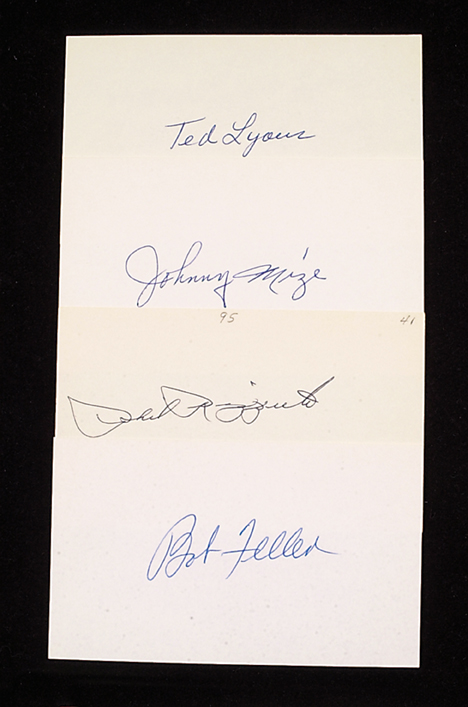 Ted Lyons
Johnny Mize
95 41
Phil Rizzuto
Bob Feller